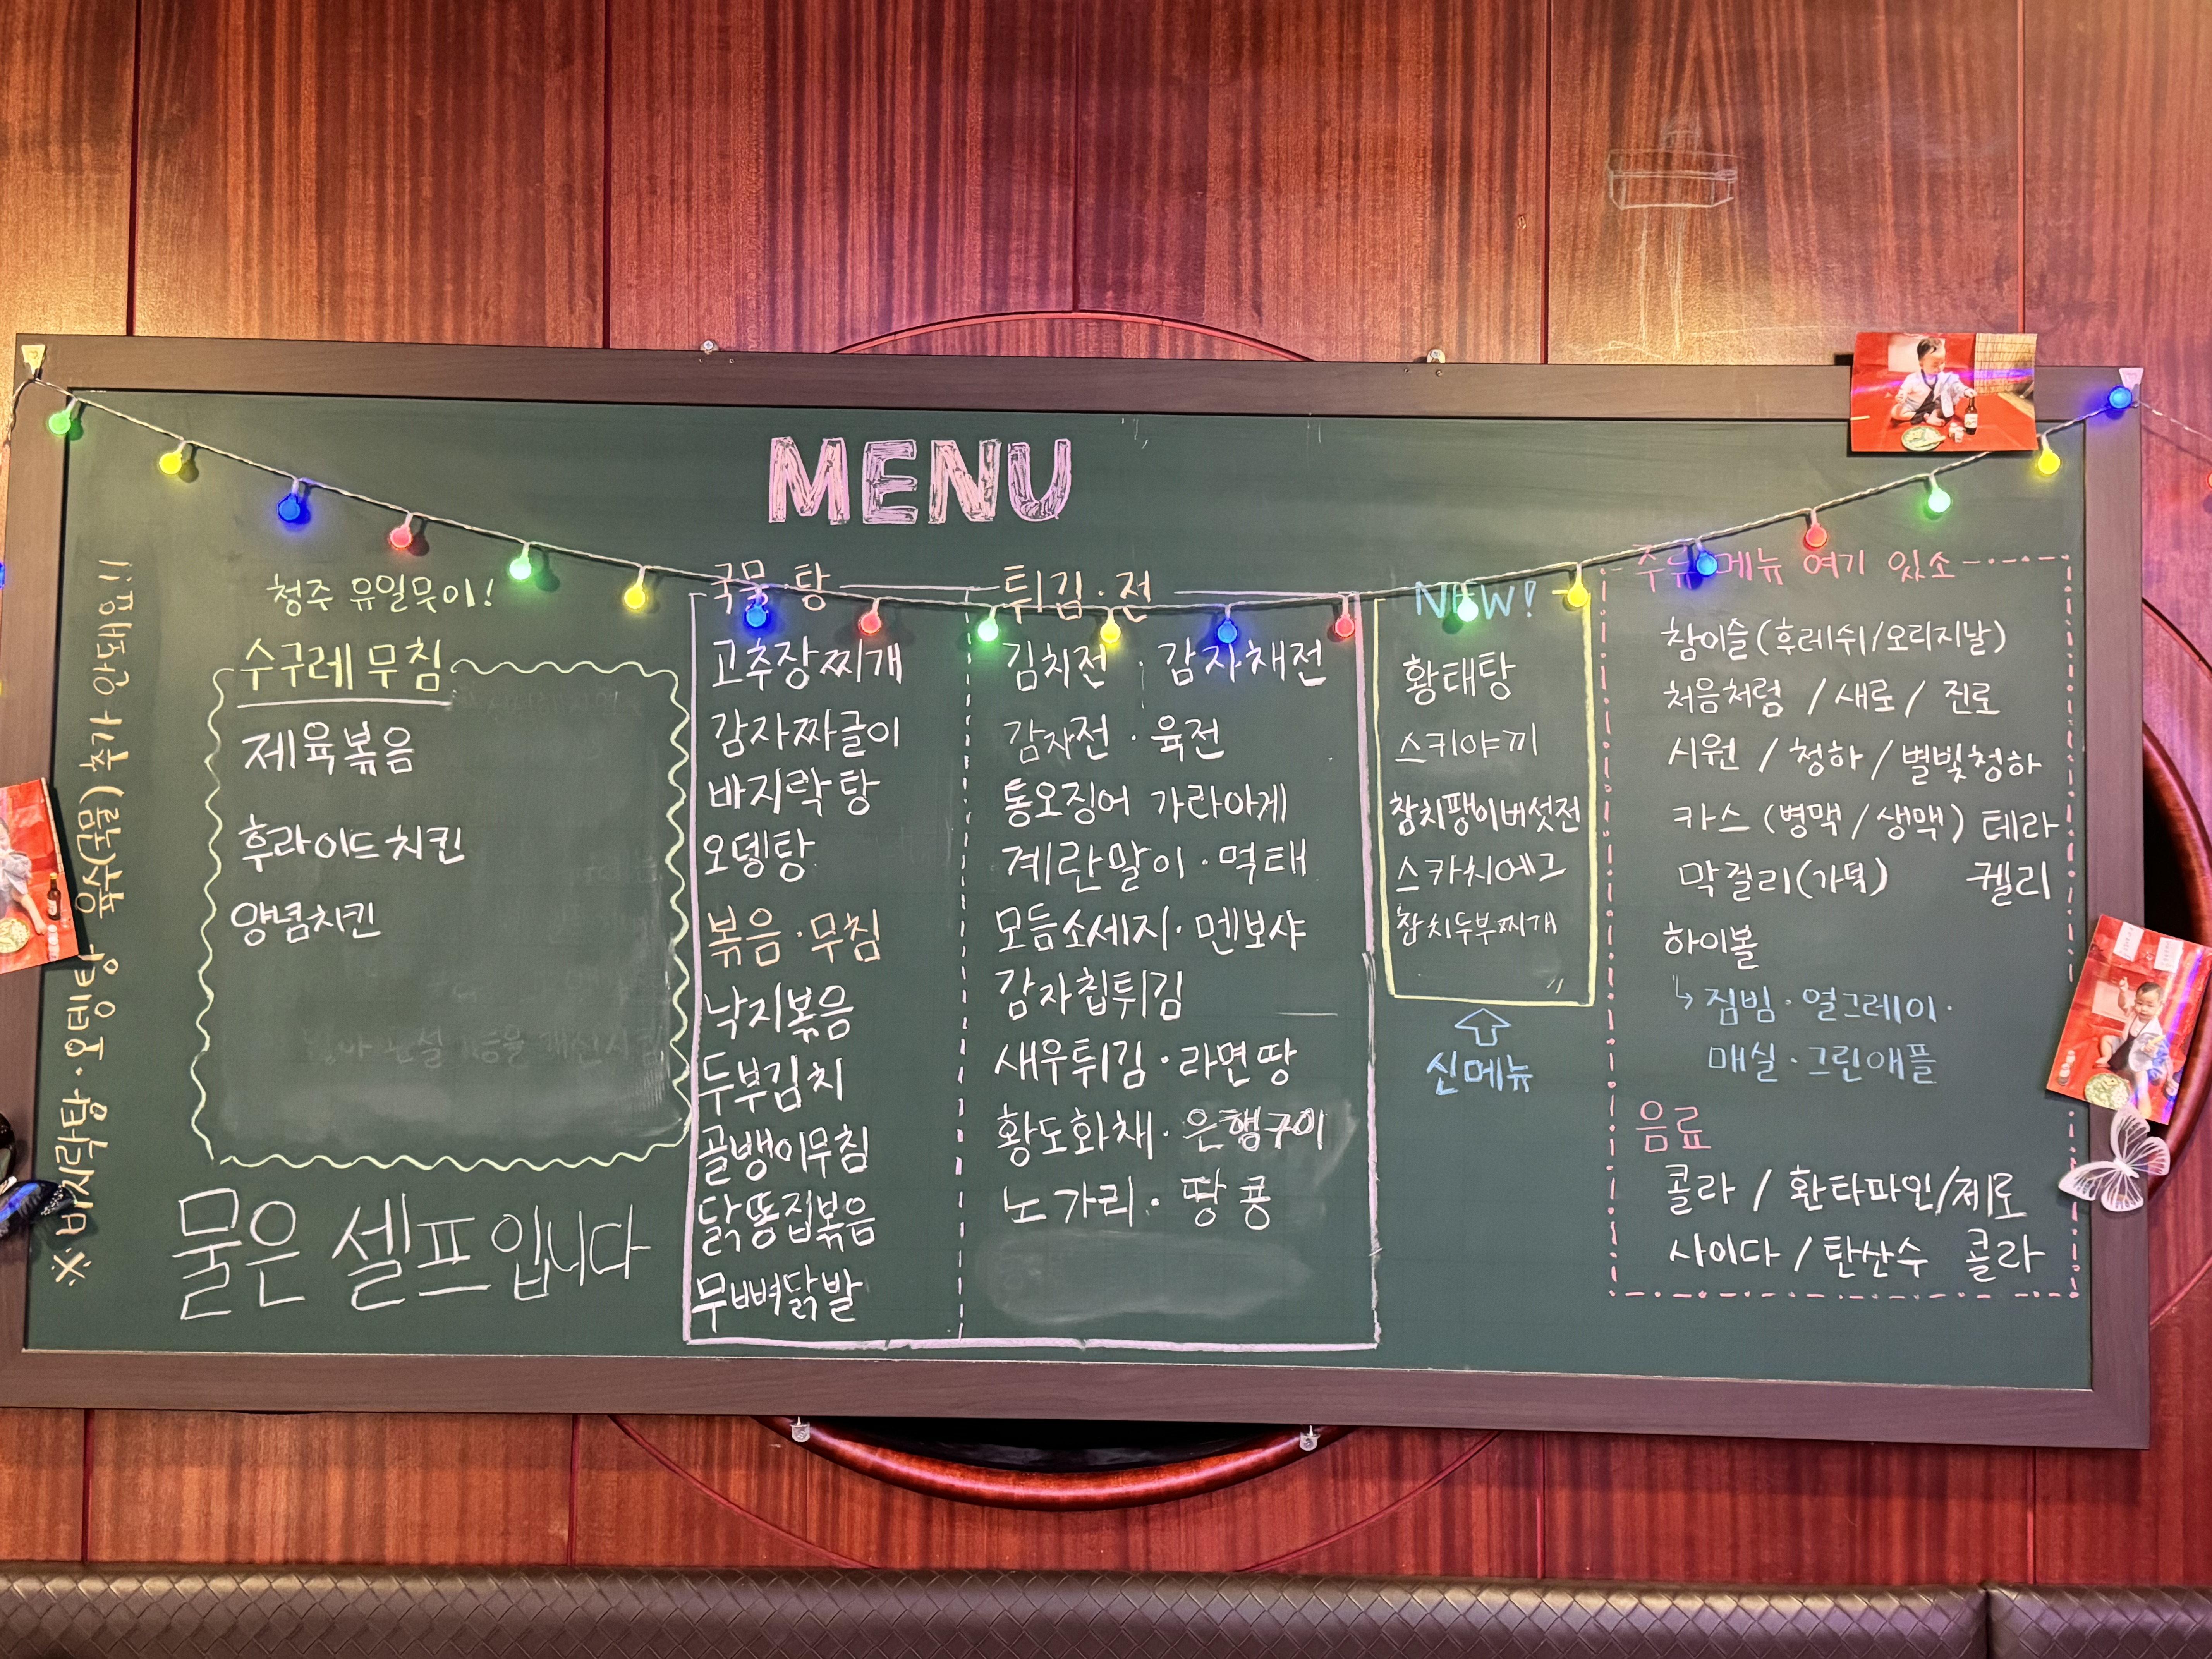 MENU
※ 바지락탕·오뎅탕 육수(국물) 추가 안돼요!!
청주 유일무이!
수구레무침
제육볶음
후라이드치킨
양념치킨
물은 셀프입니다
국물·탕
고추장찌개
감자짜글이
바지락탕
오뎅탕
볶음·무침
낙지볶음
두부김치
골뱅이무침
닭똥집볶음
무뼈닭발
튀김·전
김치전·감자채전
감자전·육전
통오징어 가라아게
계란말이·먹태
모듬소세지·멘보샤
감자칩튀김
새우튀김·라면땅
황도화채·은행구이
노가리·땅콩
NEW!
황태탕
스키야끼
참치팽이버섯전
스카치에그
참치두부찌개
신메뉴
주류메뉴 여기 있소
참이슬(후레쉬/오리지날)
처음처럼 / 새로 / 진로
시원 / 청하 / 별빛청하
카스 (병맥 / 생맥) 테라
막걸리(가덕) 켈리
하이볼
↳ 짐빔·얼그레이·
매실·그린애플
음료
콜라 / 환타파인/제로
사이다 / 탄산수 콜라